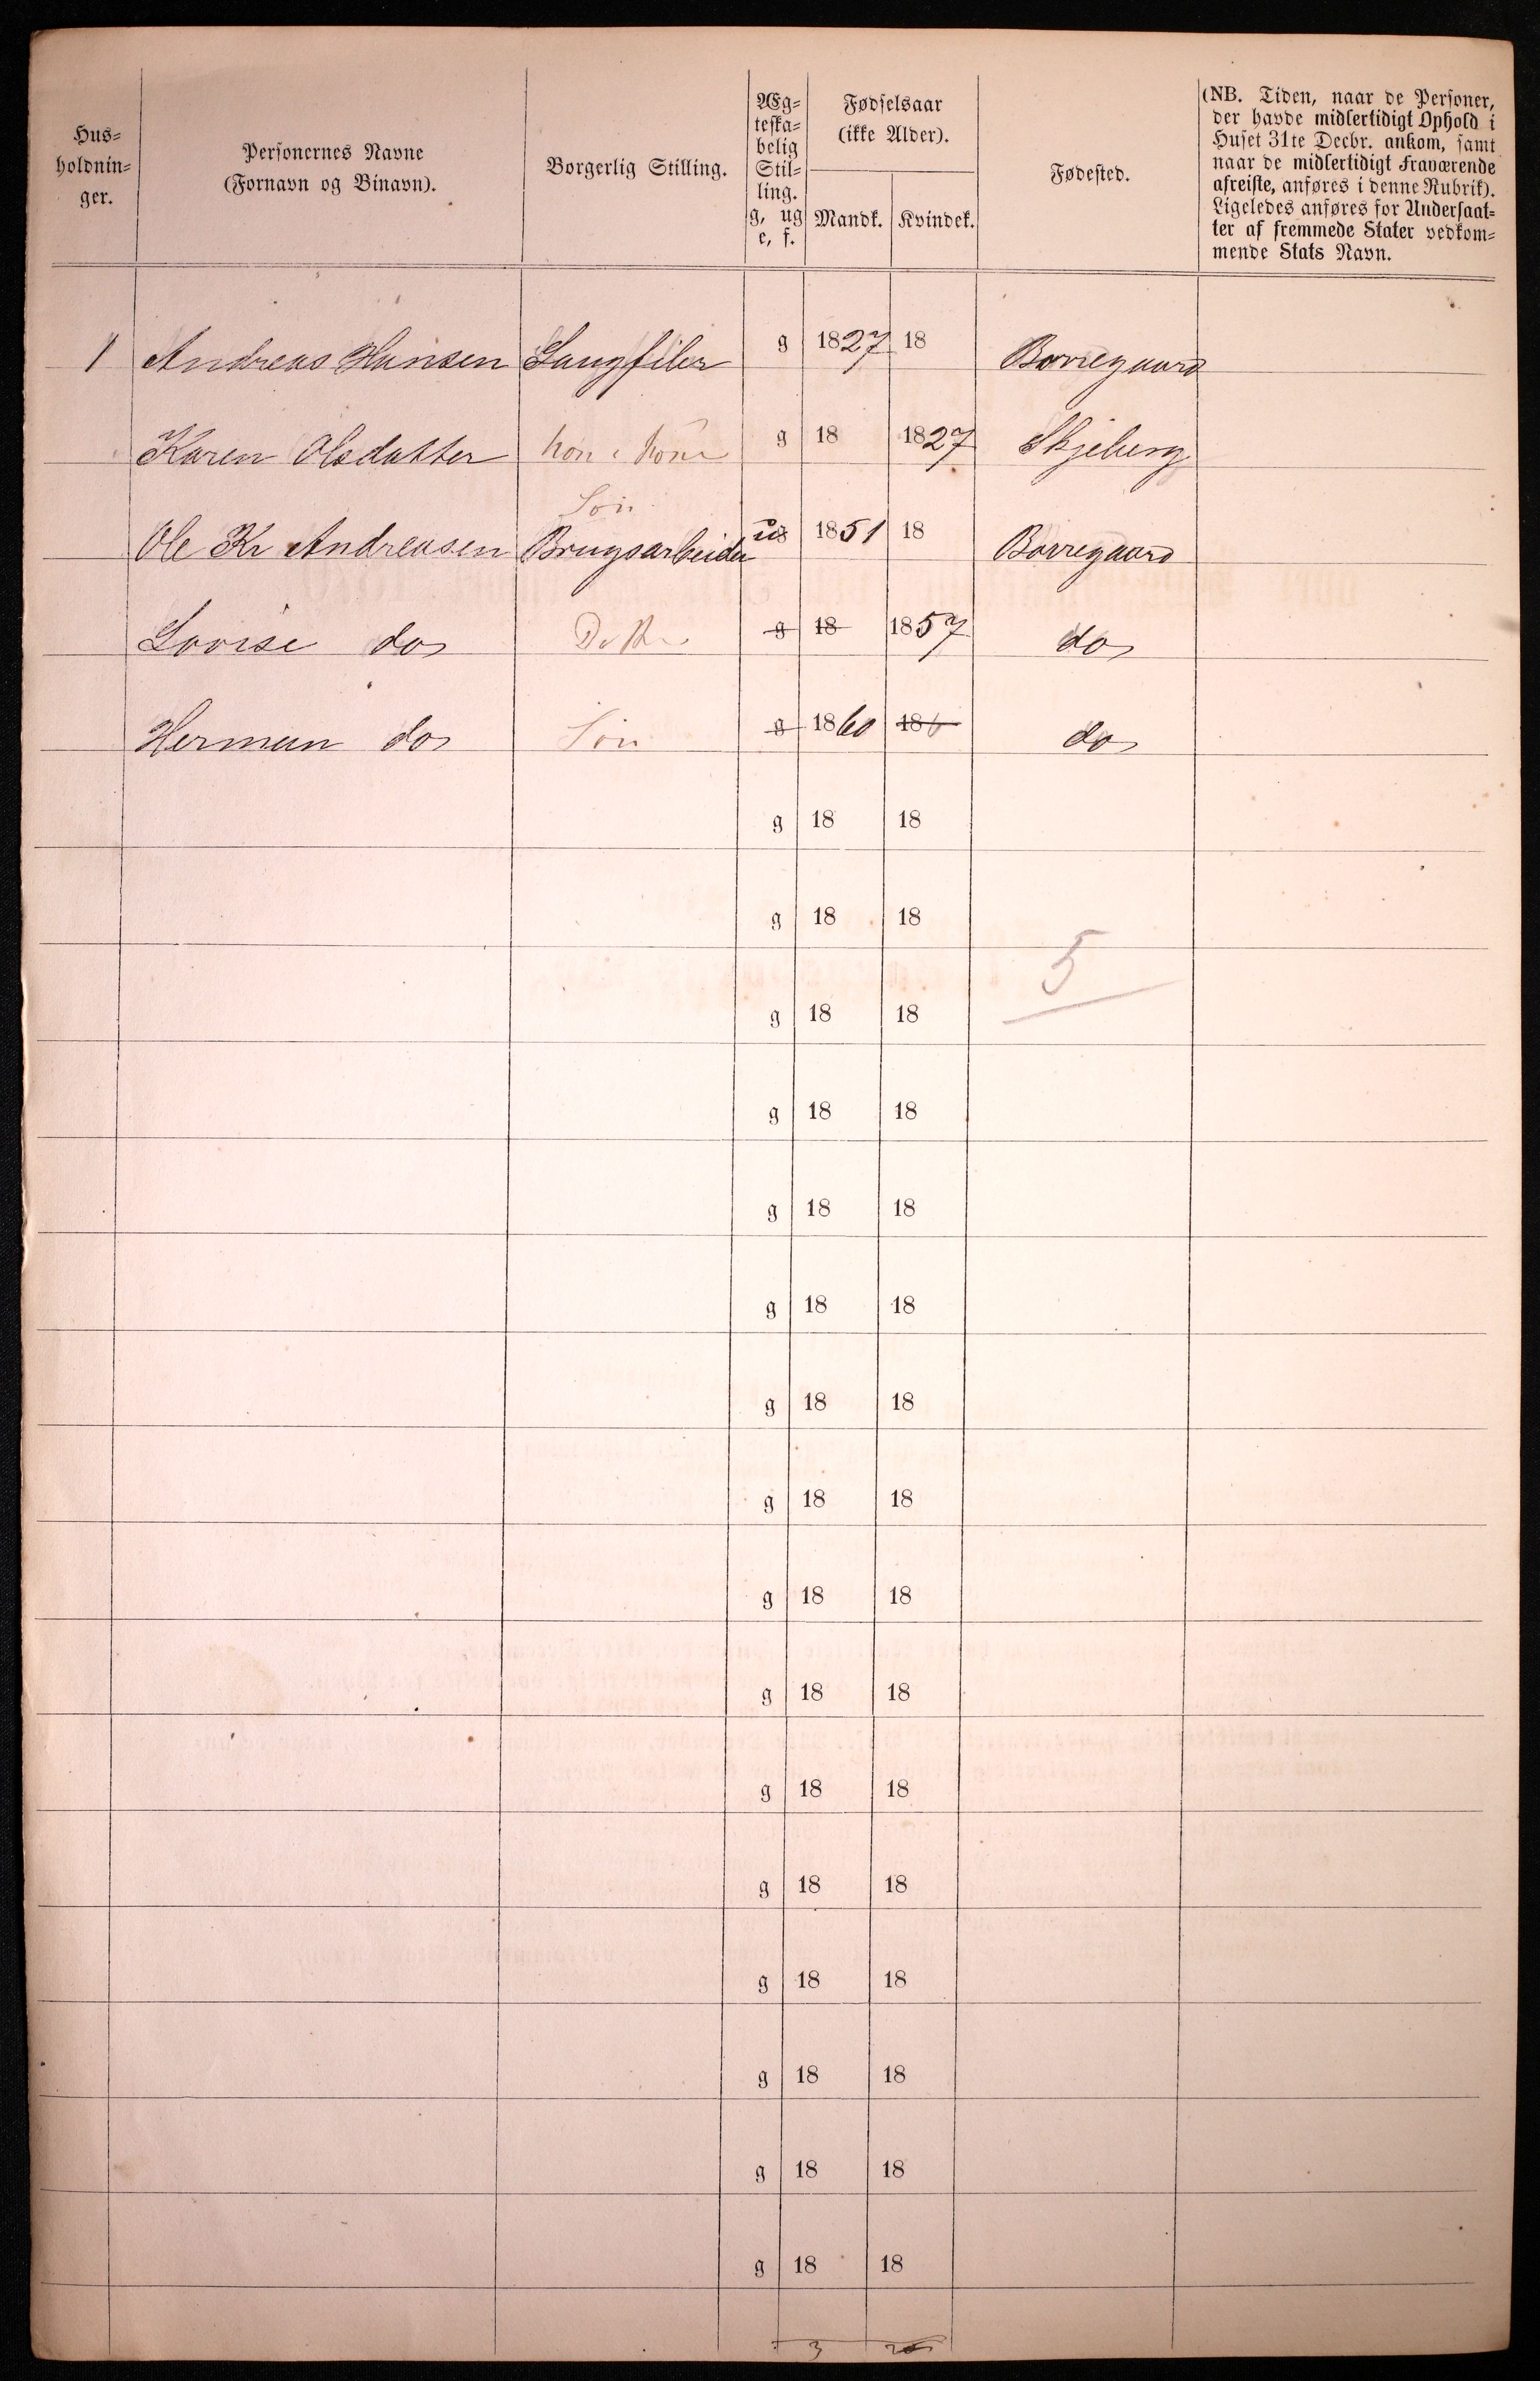 Hus-
holdnin-
ger.
Personernes Navne
(Fornavn og Binavn).
Borgerlig Stilling.
Æg-
teska-
belig
Stil-
ling.
g, ug
e, f.
Fødselsaar
(ikke Alder).
Mandk. Kvindek.
Fødested.
(NB. Tiden, naar de Personer,
der havde midlertidigt Ophold i
Huset 31te Decbr. ankom, samt
naar de midlertidigt Fraværende
afreiste, anføres i denne Rubrik).
Ligeledes anføres for Undersaat-
ter af fremmede Stater vedkom-
mende Stats Navn.
1 Andreas Hansen Saugfiler g 1827 18 Borregaard
Karen Olsdatter Kone g 18 1827 Skjeberg
Søn
Ole Kr Andreasen Brugsarbeider ug 1851 18 Borregaard
Lovise do g 18 1857 do
Herman do Søn g 1860 186 do
g 18 18
g 18 18
5
g 18 18
g 18 18
g 18 18
g 18 18
g 18 18
g 18 18
g 18 18
g 18 18
g 18 18
g 18 18
g 18 18
g 18 18
g 18 18
g 18 18
3 2